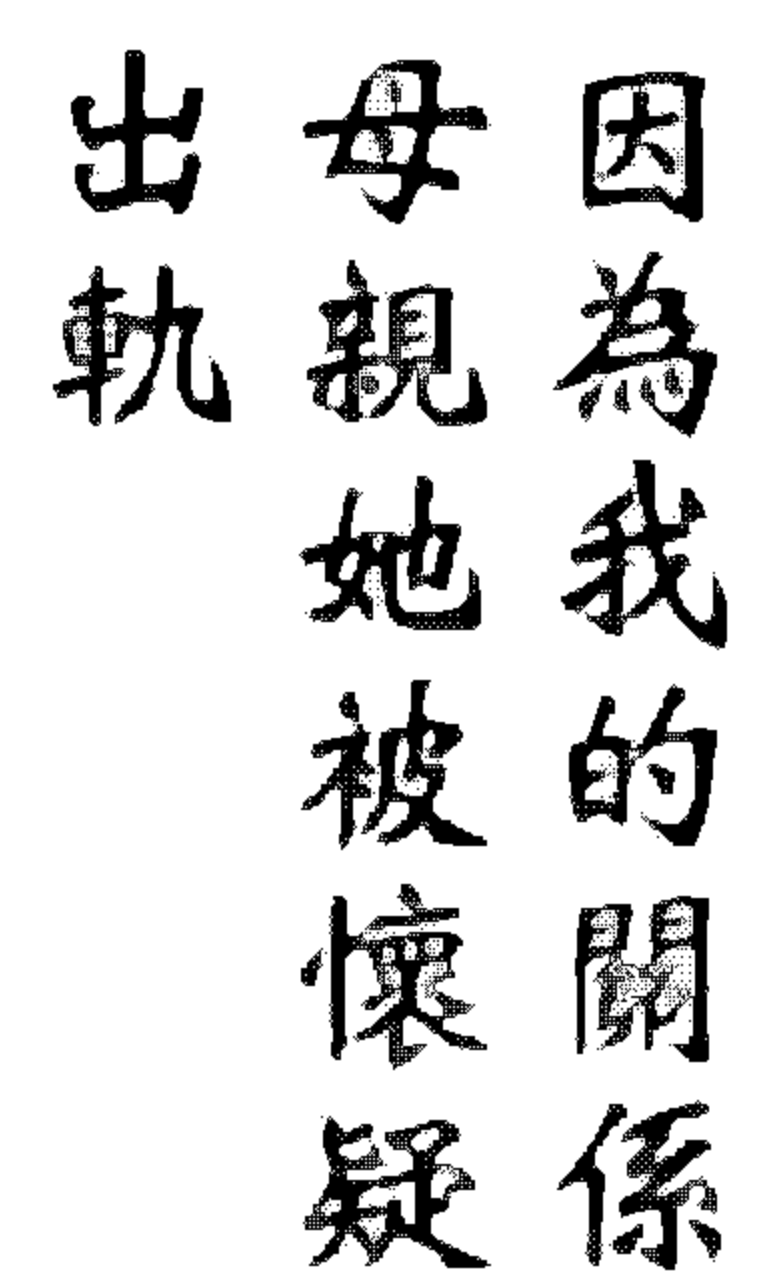 因為我的關係
母親她被懷疑
出軌